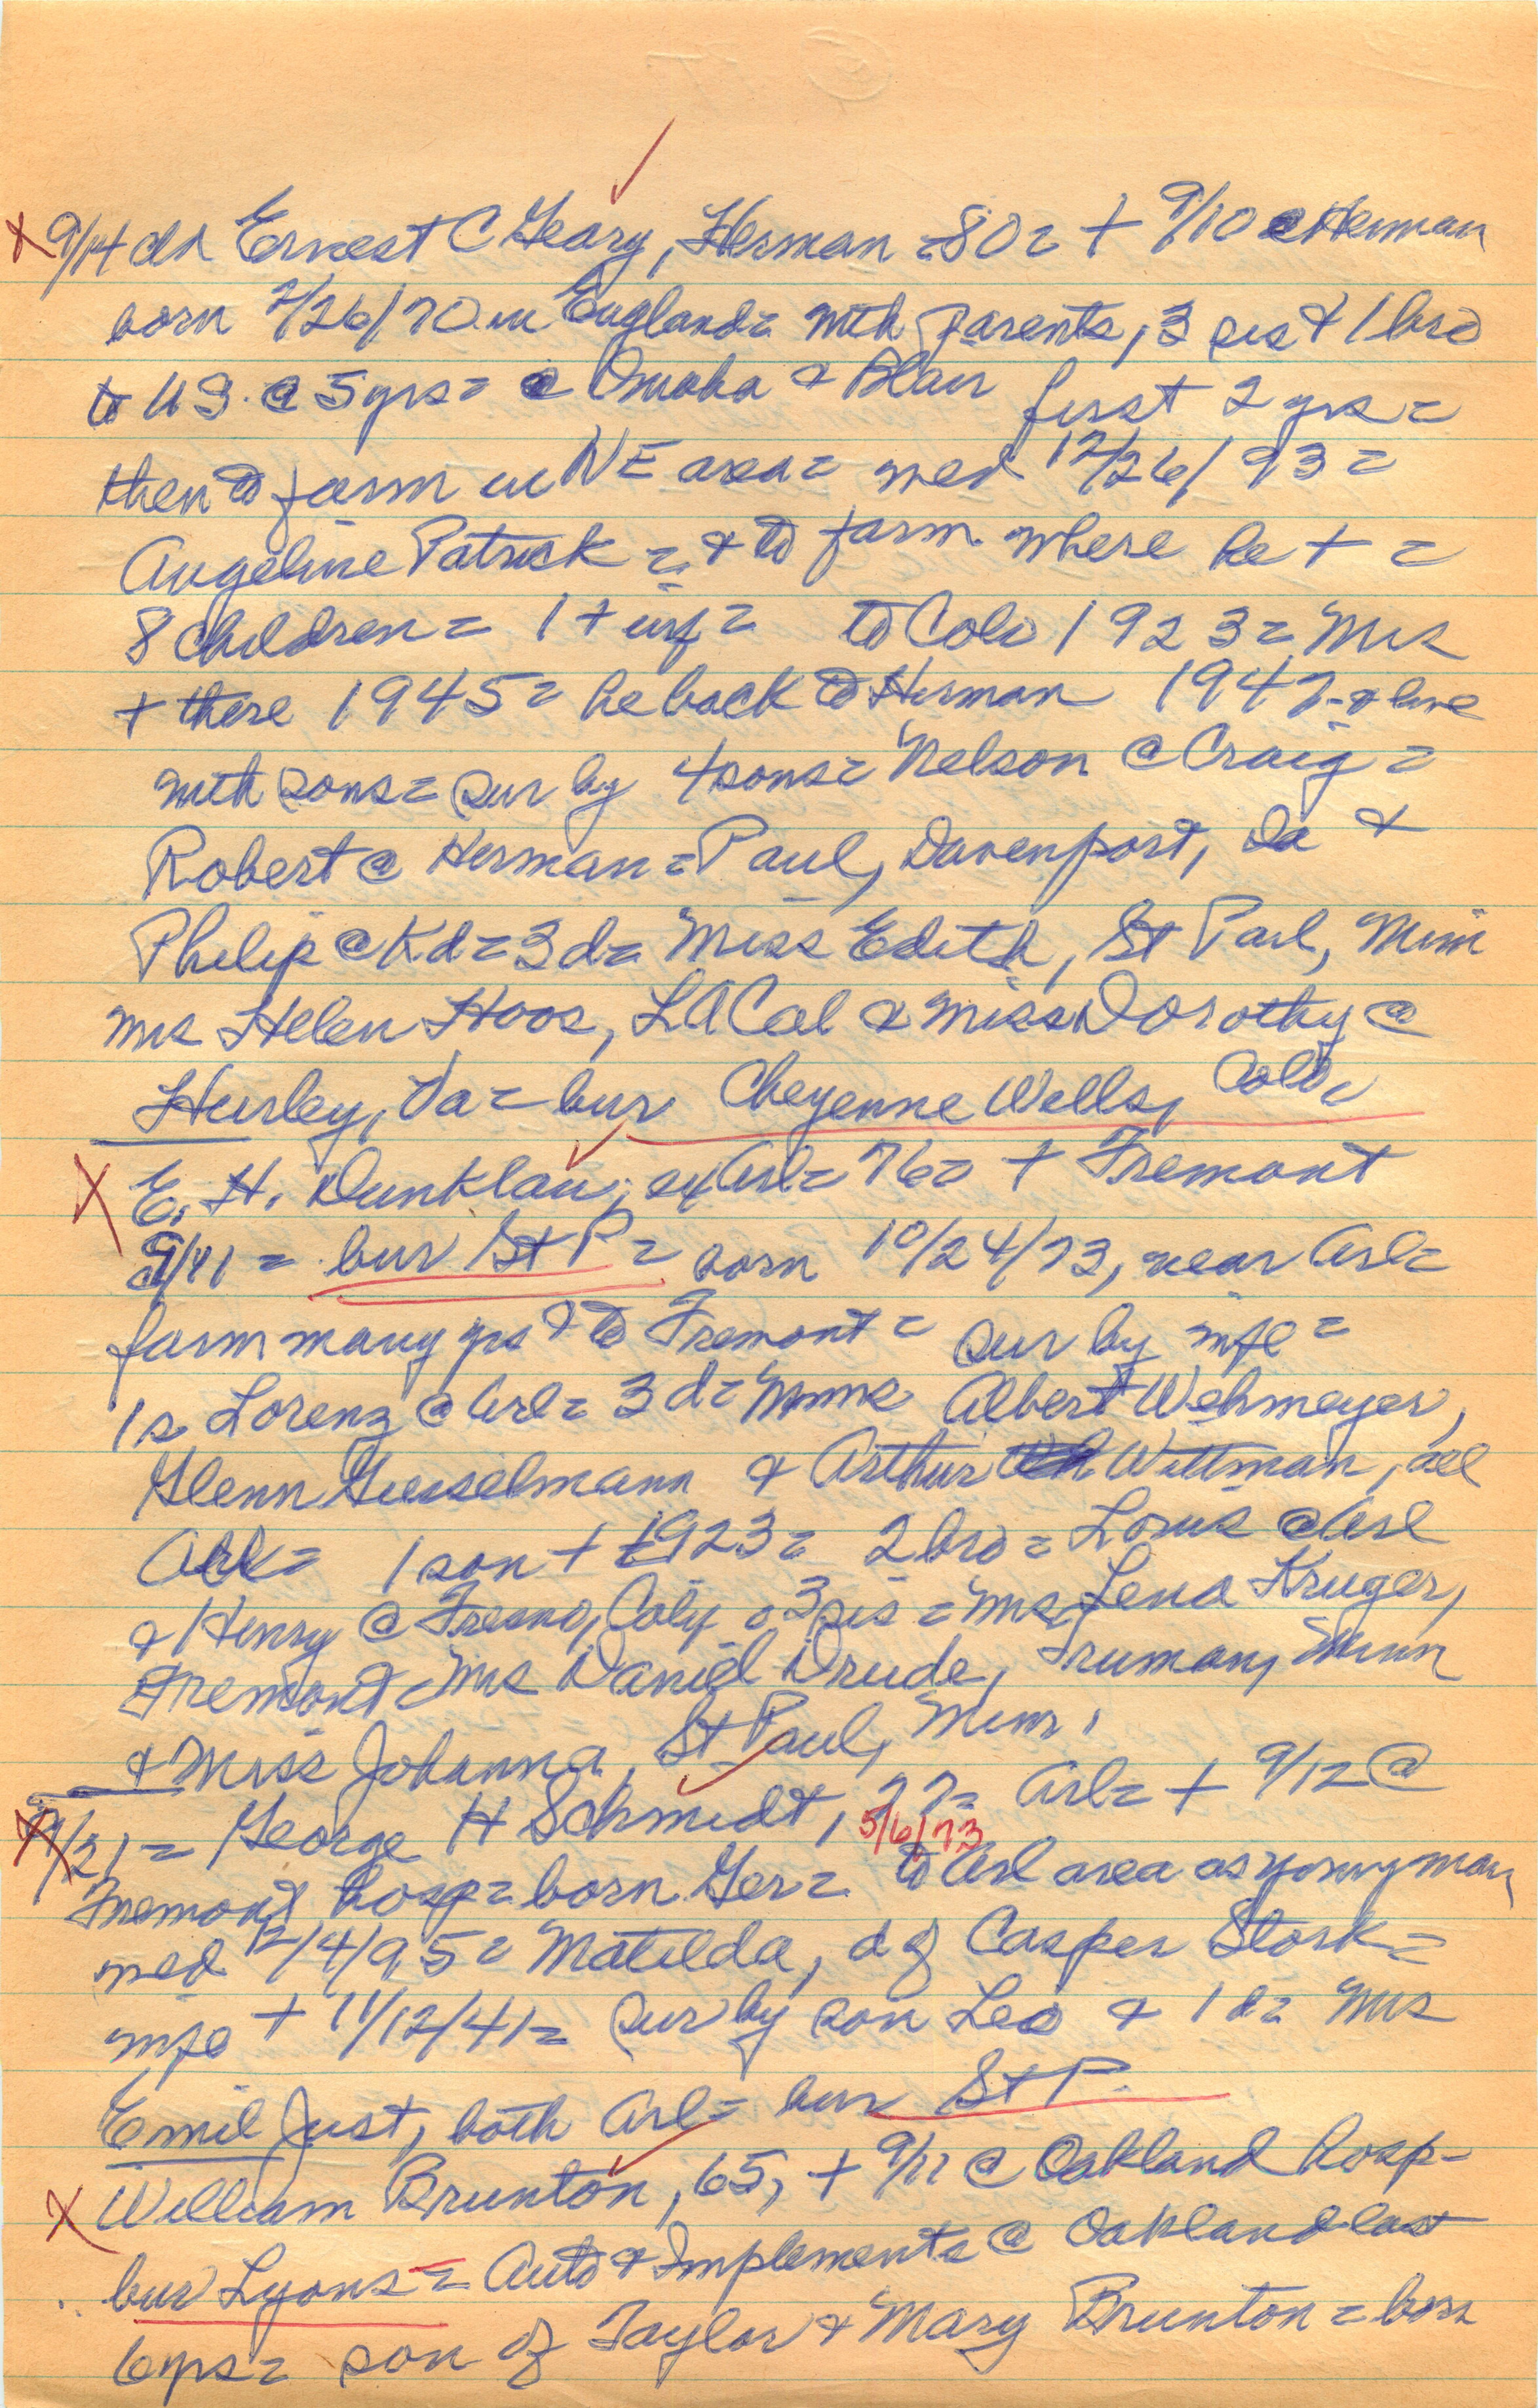 9/14 da Ernest C Geary, Herman = 80 = + 9/10 @ Herman
born 2/26/70 in England = with parents, 3 sis & 1 bro
to US @ 5 yrs = @ Omaha & Blair first 2 yrs =
then to farm in NE area = med 12/26/93 =
Angeline Patrick = & to farm where he + =
8 children = 1 + inf = to Colo 1923 = Mrs
+ there 1945 = he back to Herman 1947 - & live
with sons = sur by 4 sons = Nelson @ Craig =
Robert @ Herman = Paul, Davenport, Ia &
Philip @ Kd = 3 d = Miss Edith, St Paul, Minn
Mrs Helen Hoos, LA Cal & Miss Dorothy @
Hurley, Va = bur Cheyenne Wells, Colo =
E. H. Dunklau, ex Arl = 76 = + Fremont
9/11 = bur St P = born 10/24/73, near Arl =
farm many yrs & to Fremont = sur by wife =
1 s Lorenz @ Arl = 3 d = Mmes Albert Wehmeyer,
Glenn Gieselmann & Arthur Wittman, all
Arl = 1 son + 1923 = 2 bro = Louis @ Arl
& Henry @ Fresno, Calif = 3 sis = Mrs Lena Kruger,
Fremont = Mrs Daniel Drude, Truman, Minn
& Miss Johanna, St Paul, Minn.
9/21 = George H Schmidt, 77 = Arl = + 9/12 @
5/6/73
Fremont hosp = born Ger = to Arl area as young man
med 12/4/95 = Matilda, d of Casper Stork =
wife + 11/12/41 = sur by son Leo & 1 d = Mrs
Emil Just, both Arl = bur St P.
William Brunton, 65, + 9/11 @ Oakland hosp -
bur Lyons = Auto & Implements @ Oakland last
6 yrs = son of Taylor & Mary Brunton = born